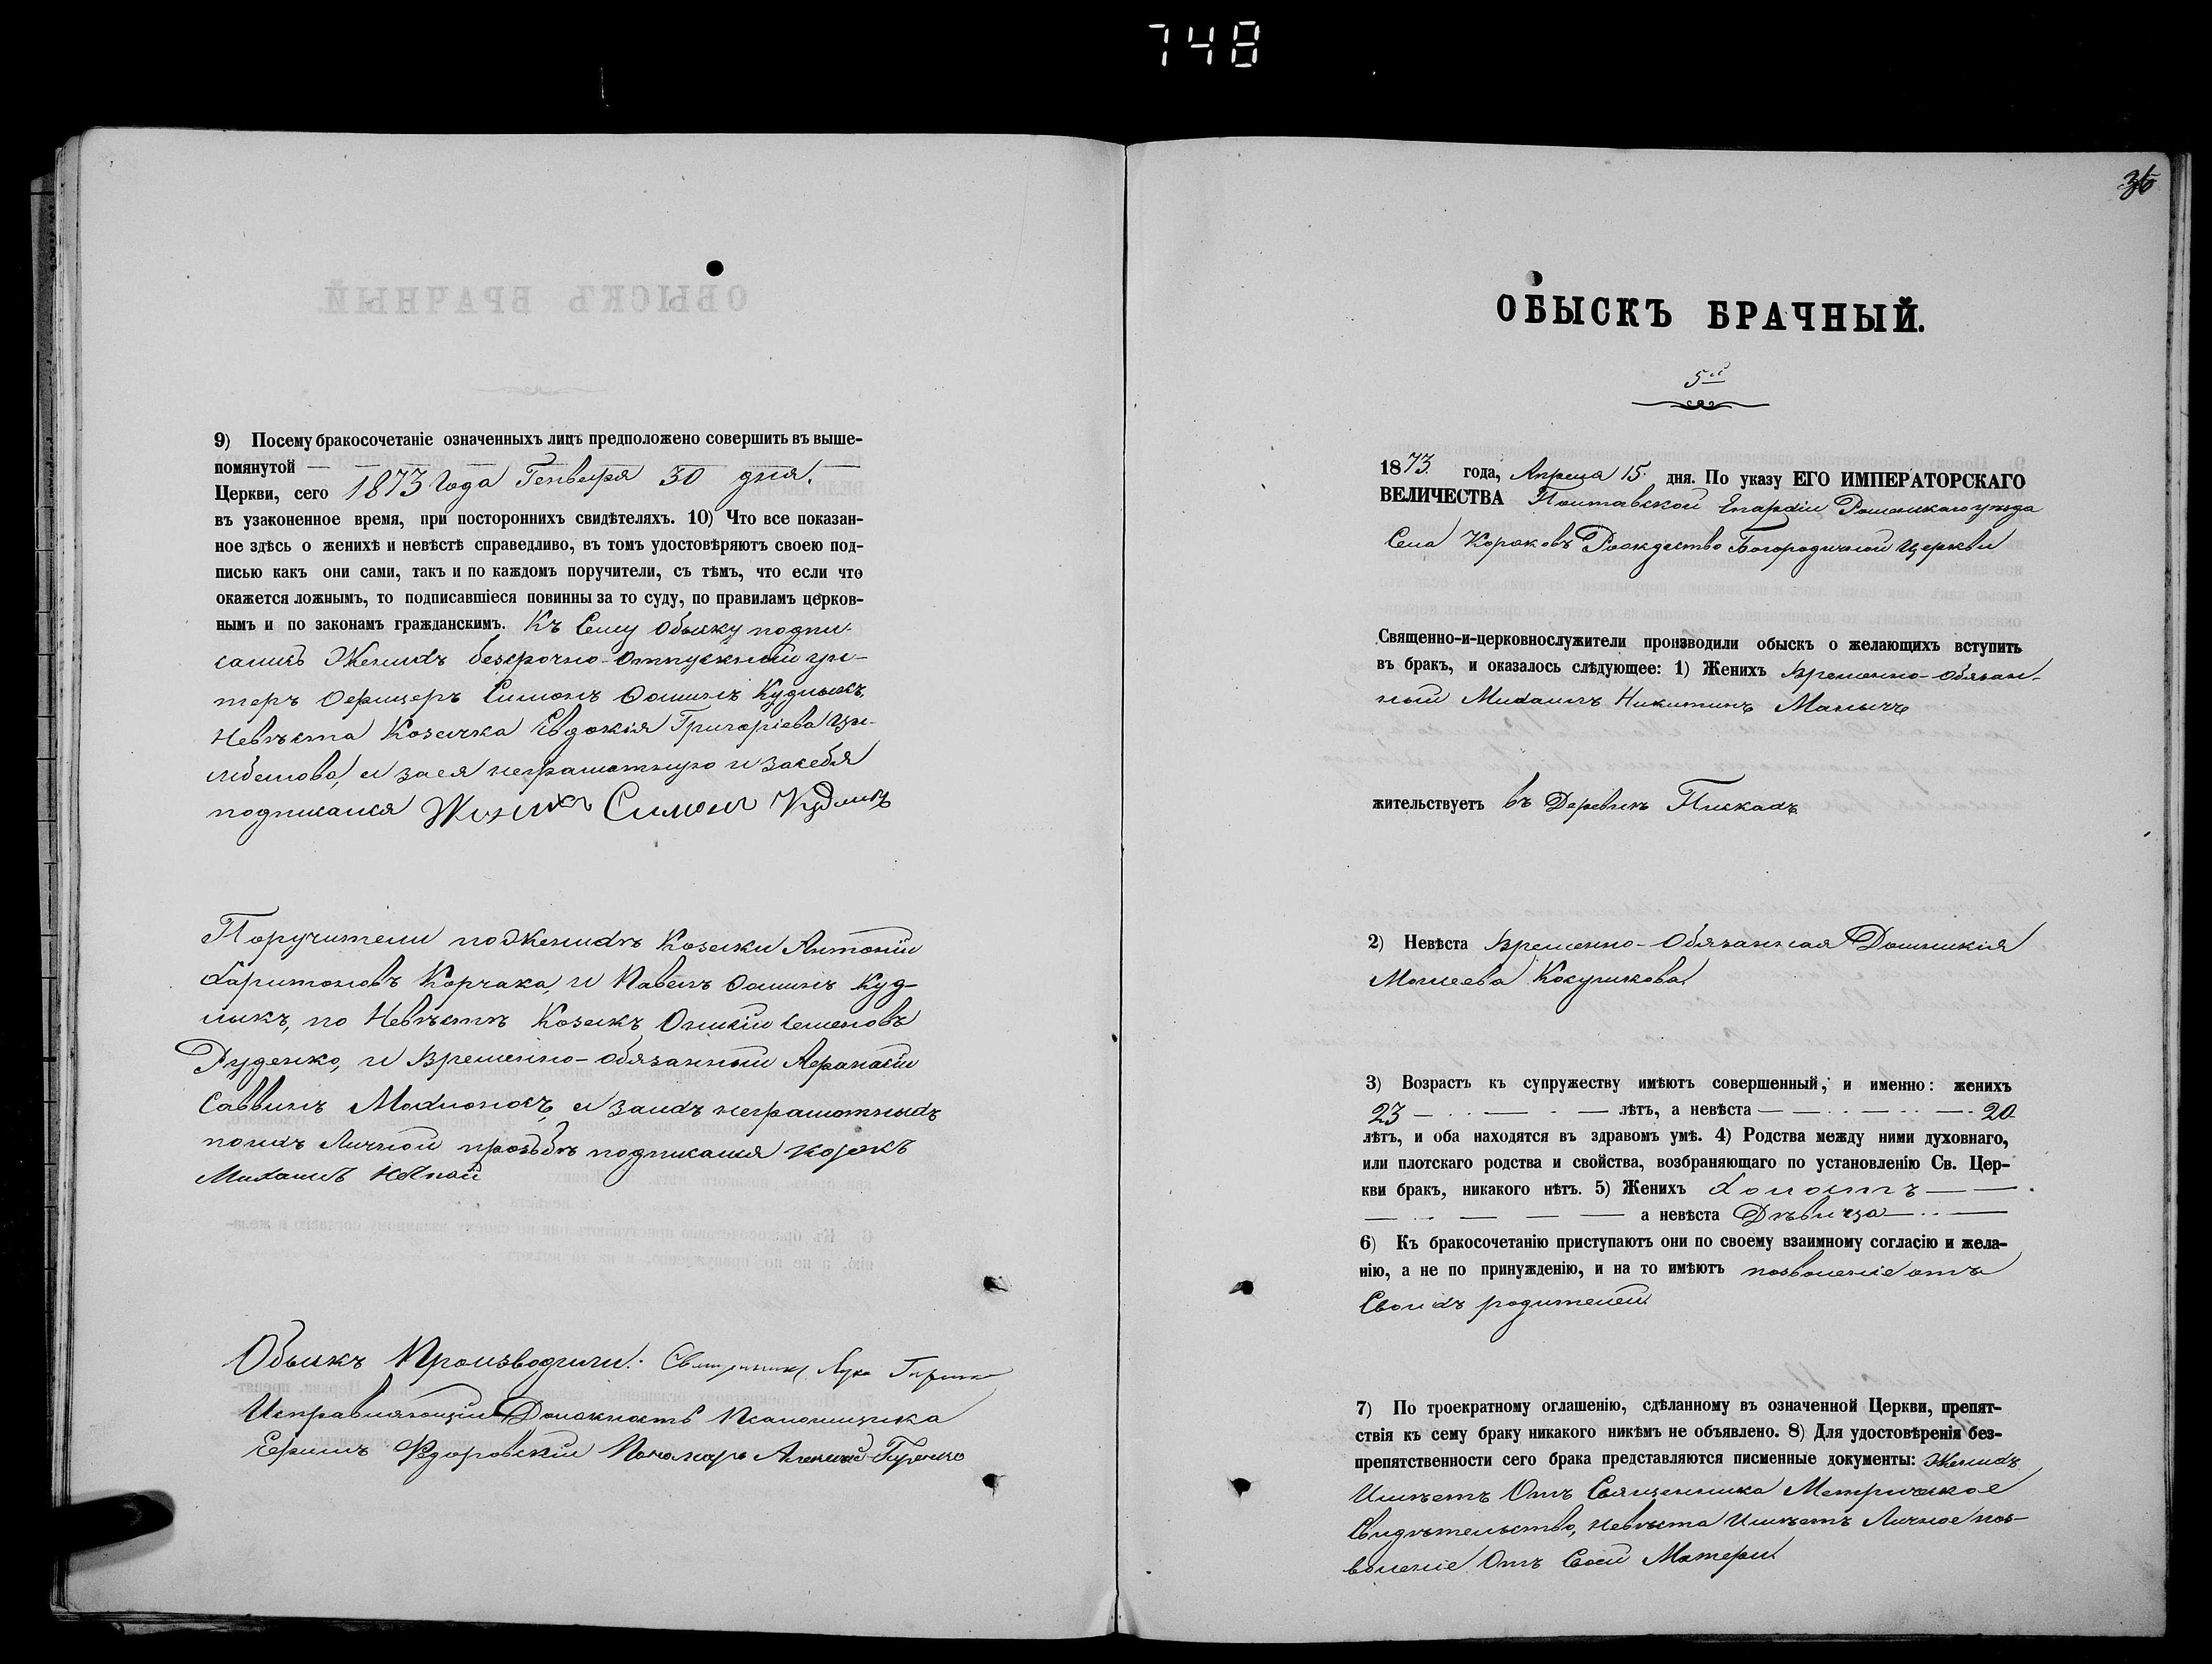 748
9) Посему бракосочетаніе означенныхъ лицъ предположено совершить въ выше-
помянутой
Церкви, сего 1873 года Генвара 30 дня.
въ узаконенное время, при постороннихъ свидѣтеляхъ. 10) Что все показан-
ное здѣсь о женихѣ и невѣстѣ справедливо, въ томъ удостовѣряютъ своею под-
писью какъ они сами, такъ и по каждомъ поручители, съ тѣмъ, что если что
окажется ложнымъ, то подписавшіеся повинны за то суду, по правиламъ церков-
нымъ и по законамъ гражданскимъ. Къ Сему Обыску подпи-
сались Женихъ безсрочно-Отпускный ун-
теръ Оефицеръ Симонъ Ооминъ Кудлыкъ,
Невѣста Козачка Евдокія Григоріева
и за ея неграмотную и за себя
подписался Женихъ Симонъ Кудликъ
Поручители по Женихѣ Козаки Антоній
Харитоновъ Корчака, и Павелъ Ооминъ Куд-
лыкъ, по Невѣстѣ Козакъ Онисій Семеновъ
Руденко, и Временно-обязанный Аеранасій
Саввинъ и за ихъ неграмотныхъ
по ихъ Личной прозьбѣ подписался козакъ
Михаилъ
Обыскъ Производили: Священникъ Лука
Исправляющій Должность Псаломщика
Ефимъ Ѳедоровскій Пономарь Алексій
36
ОБЫСКЪ БРАЧНЫЙ.
5й
1873 года, Апреля 15 дня. По указу ЕГО ИМПЕРАТОРСКАГО
ВЕЛИЧЕСТВА Полтавской Епархіи Роменскаго уѣзда
Села Коровокъ Рождество Богородичной Церкви
Священно-и-церковнослужители производили обыскъ о желающихъ вступить
въ бракъ, и оказалось слѣдующее: 1) Женихъ Временно-Обязан-
ный Михаилъ Никитинъ Манычъ
жительствуетъ въ Деревнѣ Пискахъ
2) Невѣста Временно-Обязанная Домникія
Моисеева
3) Возрастъ къ супружеству имѣютъ совершенный, и именно: женихъ
23 лѣтъ, а невѣста 20
лѣтъ, и оба находятся въ здравомъ умѣ. 4) Родства между ними духовнаго,
или плотскаго родства и свойства, возбраняющаго по установленію Св. Цер-
кви бракъ, никакого нѣтъ. 5) Женихъ Холостъ
а невѣста Дѣвица
6) Къ бракосочетанію приступаютъ они по своему взаимному согласію и жела-
нію, а не по принужденію, и на то имѣютъ позволеніе отъ
Своихъ родителей
7) По троекратному оглашенію, сдѣланному въ означенной Церкви, препят-
ствія къ сему браку никакого никѣмъ не объявлено. 8) Для удостовѣренія без-
препятственности сего брака представляются писменные документы: Женихъ
Имѣетъ Отъ Священника Метрическое
Свидѣтельство, Невѣста Имѣетъ Личное поз-
воленіе Отъ Своей Матери.